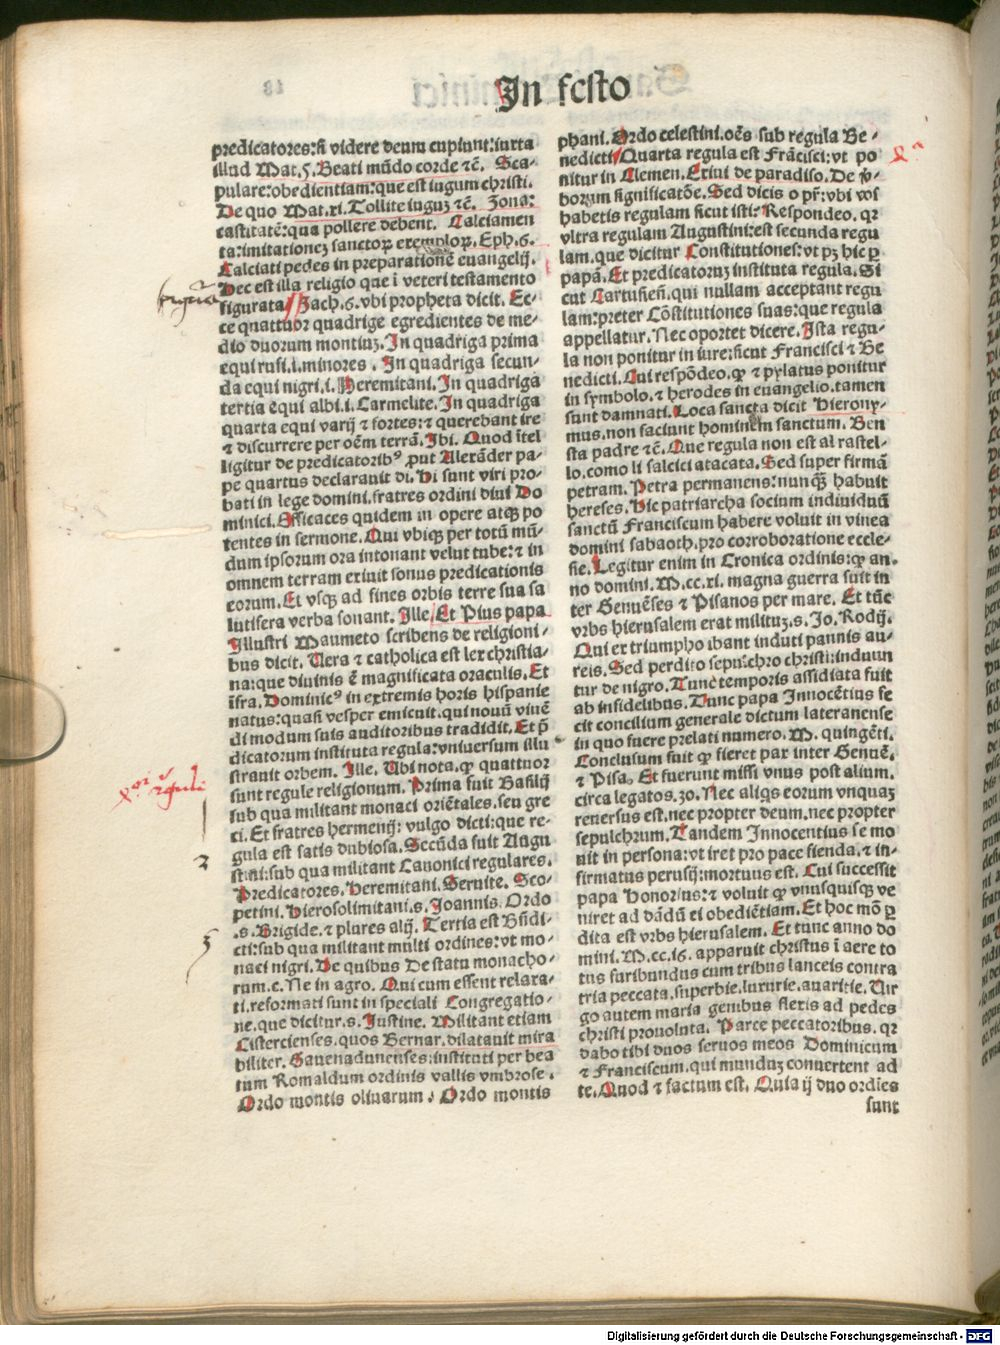 In festo
predicatores: si videre deum cupiunt: iuxta
illud Mat. 5. Beati mūdo corde ⁊c̄. Sca-
pulare: obedientiam: que est iugum christi.
De quo Mat. xi. Tollite iuguꝫ ⁊c̄. Zona:
castitatē: qua pollere debent. Calciamen
ta: imitationeꝫ sanctoꝝ exemploꝝ. Eph. 6.
Calciati pedes in preparationē euangelij.
Hec est illa religio que ī veteri testamento
figurata Zach. 6. vbi propheta dicit. Ec-
ce quattuor quadrige egredientes de me-
dio duorum montiuꝫ. In quadriga prima
equi rufi .i. minores. In quadriga secun-
da equi nigri .i. Heremitani. In quadriga
tertia equi albi .i. Carmelite. In quadriga
quarta equi varij ⁊ fortes: ⁊ querebant ire
⁊ discurrere per oēm terrā. Ibi. Quod ītel
ligitur de predicatoribꝰ ꝓut Alexāder pa-
pe quartus declarauit di. Hi sunt viri pro-
bati in lege domini. fratres ordini diui Do
minici. Efficaces quidem in opere atqꝫ po
tentes in sermone. Qui vbiqꝫ per totū mū-
dum ipsorum ora intonant velut tube: ⁊ in
omnem terram exiuit sonus predicationis
eorum. Et vsqꝫ ad fines orbis terre sua sa
lutifera verba sonant. Ille. Et Pius papa
Illustri Maumeto scribens de religioni-
bus dicit. Uera ⁊ catholica est lex christia-
na: que diuinis ē magnificata oraculis. Et
īfra. Dominicꝰ in extremis horis hispanie
natus: quasi vesper emicuit. qui nouū viuē
di modum suis auditoribus tradidit. Et p̄
dicatorum instituta regula: vniuersum illu
strauit orbem. Ille. Ubi nota. ꝙ quattuor
sunt regule religionum. Prima fuit Basilij
sub qua militant monaci oriētales. seu gre
ci. Et fratres hermenij: vulgo dicti: que re-
gula est satis dubiosa. Secūda fuit Augu
stini: sub qua militant Canonici regulares.
Predicatores. Heremitani. Seruite. Sco-
petini. Hierosolimitani. s. Joannis. Ordo
.s. Brigide. ⁊ plures alij. Tertia est Bn̄di-
cti: sub qua militant multi ordines: vt mo-
naci nigri. De quibus De statu monacho-
rum. c. Ne in agro. Qui cum essent relaxa-
ti. reformati sunt in speciali Congregatio-
ne. que dicitur. s. Justine. Militant etiam
Cistercienses. quos Bernar. dilatauit mira
biliter. Gauenadunenses: instituti per bea
tum Romaldum ordinis vallis vmbrose.
Ordo montis oliuarum. Ordo montis
phani. Ordo celestini. oēs sub regula Be-
nedicti. Quarta regula est Frācisci: vt po
nitur in Clemen. Exiui de paradiso. De
borum significatōe. Sed dicis o pr̄: vbi vos
habetis regulam sicut isti: Respondeo. qꝛ
vltra regulam Augustini: est secunda regu
lam. que dicitur Constitutiones: vt pꝫ hic ꝑ
papā. Et predicatoruꝫ instituta regula. Si
cut Cartusieñ. qui nullam acceptant regu
lam: preter Cōstitutiones suas: que regula
appellatur. Nec oportet dicere. Ista regu-
la non ponitur in iure: sicut Francisci ⁊ Be
nedicti. Qui respōdeo. ꝙ ⁊ pylatus ponitur
in symbolo. ⁊ herodes in euangelio. tamen
sunt damnati. Loca sancta dicit Hierony-
mus. non faciunt hominem sanctum. Ben
sta padre ⁊c̄. Que regula non est al rastel-
lo. como li salcici atacata. Sed super firmā
petram. Petra permanens: nunqꝫ habuit
hereses. Hic patriarcha socium indiuiduū
sanctū Franciscum habere voluit in vinea
domini sabaoth. pro corroboratione eccle-
sie. Legitur enim in Cronica ordinis: ꝙ an-
no domini. M. cc. xi. magna guerra fuit in
ter Genuēses ⁊ Pisanos per mare. Et tūc
vrbs hierusalem erat milituꝫ. s. Jo. Rodij.
Qui ex triumpho ibant induti pannis au-
reis. Sed perdito sepulchro christi: induun
tur de nigro. Tunc temporis assidiata fuit
ab infidelibus. Tunc papa Innocētius fe
cit concilium generale dictum lateranense
in quo fuere prelati numero. M. quingēti.
Conclusum fuit ꝙ fieret pax inter Genuē.
⁊ Pisa. Et fuerunt missi vnus post alium.
circa legatos. 30. Nec aliqs eorum vnquaꝫ
reuersus est. nec propter deum. nec propter
sepulchrum. Tandem Innocentius se mo
uit in persona: vt iret pro pace fienda. ⁊ in-
firmatus perusij: mortuus est. Cui successit
papa Honorius: ⁊ voluit ꝙ vnusquisqꝫ ve
niret ad dādū ei obediētiam. Et hoc mō ꝑ
dita est vrbs hierusalem. Et tunc anno do
mini. M. cc. 16. apparuit christus ī aere to
tus furibundus cum tribus lanceis contra
tria peccata. superbie. luxurie. auaritie. Uir
go autem maria genibus flexis ad pedes
christi prouoluta. Parce peccatoribus. qꝛ
dabo tibi duos seruos meos Dominicum
⁊ Franciscum. qui munduꝫ conuertent ad
te. Quod ⁊ factum est. Quia ij duo ordīes
sunt
2
3
Digitalisierung gefördert durch die Deutsche Forschungsgemeinschaft - DFG